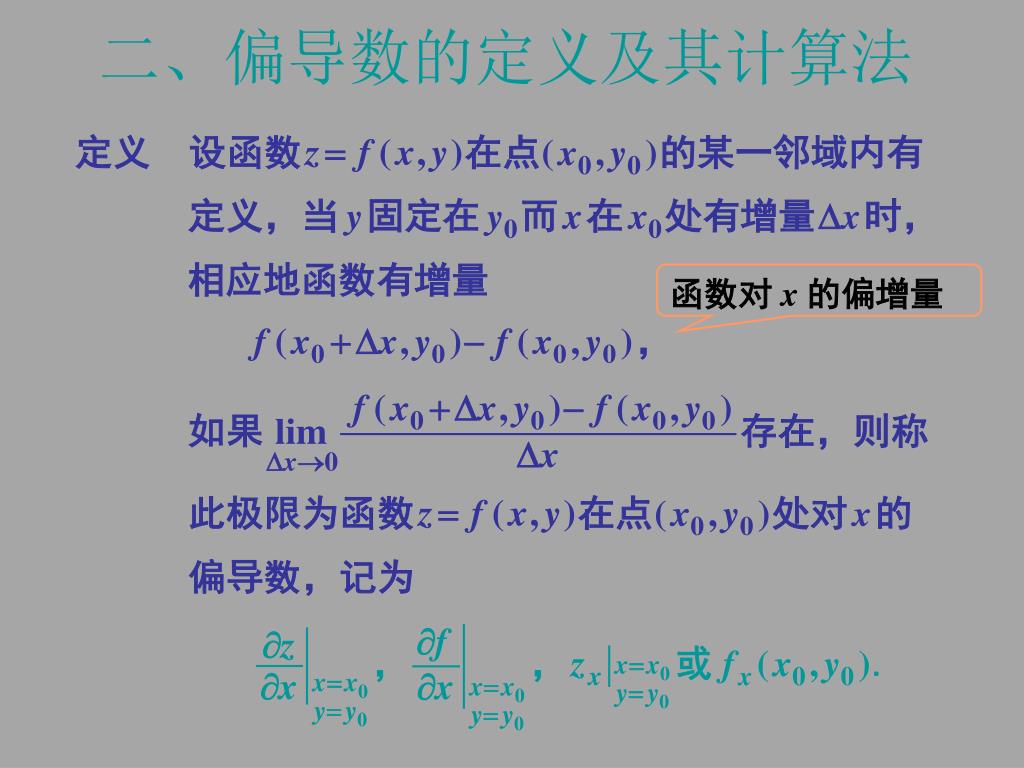 二、偏导数的定义及其计算法
定义 设函数 z = f (x, y) 在点(x₀, y₀)的某一邻域内有
定义，当 y 固定在 y₀ 而 x 在 x₀ 处有增量 Δx 时，
相应地函数有增量
函数对 x 的偏增量
f (x₀ + Δx, y₀) − f (x₀, y₀)，
如果 lim_{Δx→0} \frac{f (x₀ + Δx, y₀) − f (x₀, y₀)}{Δx} 存在，则称
此极限为函数 z = f (x, y) 在点(x₀, y₀)处对 x 的
偏导数，记为
\frac{∂z}{∂x}|_{x=x₀ y=y₀}，\frac{∂f}{∂x}|_{x=x₀ y=y₀}，z_x|_{x=x₀ y=y₀} 或 f_x (x₀, y₀).